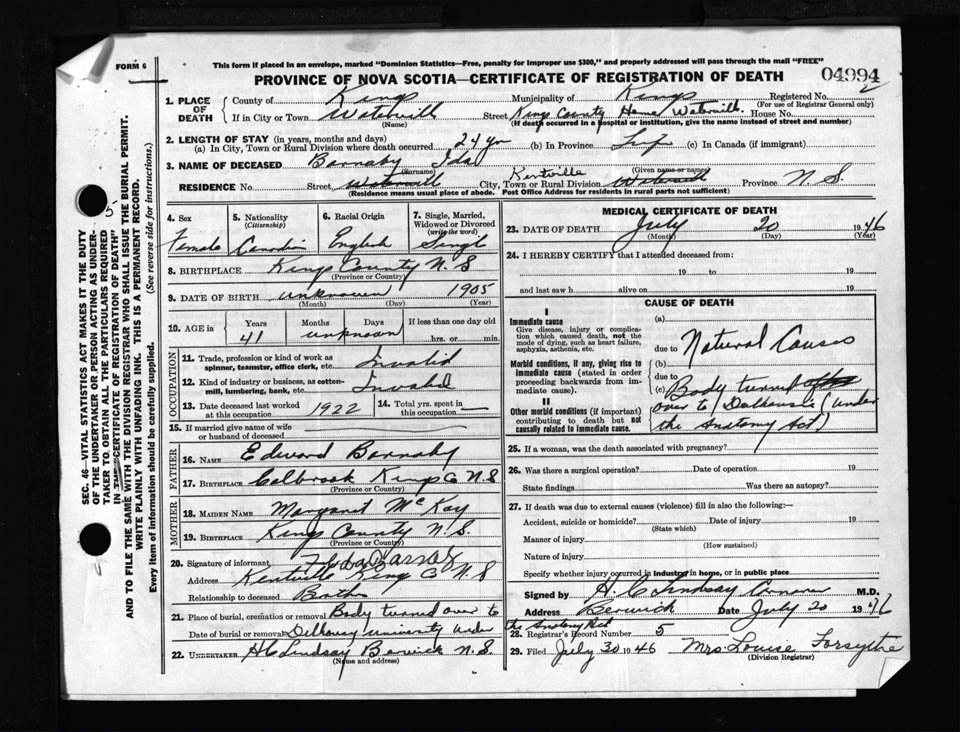 FORM 6
This form if placed in an envelope, marked "Dominion Statistics—Free, penalty for improper use $300," and properly addressed will pass through the mail "FREE"
PROVINCE OF NOVA SCOTIA—CERTIFICATE OF REGISTRATION OF DEATH
04994
2
1. PLACE OF DEATH
County of Kings Municipality of Kings Registered No.
(For use of Registrar General only)
If in City or Town Waterville Street Kings County Home Waterville House No.
(Name) (If death occurred in a hospital or institution, give the name instead of street and number)
2. LENGTH OF STAY (in years, months and days)
(a) In City, Town or Rural Division where death occurred 24 yr (b) In Province Life (c) In Canada (if immigrant)
3. NAME OF DECEASED Barnaby Ida
(Surname) (Given name or names)
Kentville
RESIDENCE No. Street Waterville City, Town or Rural Division Province N.S
(Residence means usual place of abode. Post Office Address for residents in rural parts not sufficient)
4. Sex
Female
5. Nationality
(Citizenship)
Canadin
6. Racial Origin
English
7. Single, Married, Widowed or Divorced
(write the word)
Singl
8. BIRTHPLACE Kings County N S
(Province or Country)
9. DATE OF BIRTH unknown 1905
(Month) (Day) (Year)
10. AGE in Years Months Days If less than one day old
41 unknown hrs. or min.
OCCUPATION
11. Trade, profession or kind of work as spinner, teamster, office clerk, etc. Invalid
12. Kind of industry or business, as cotton-mill, lumbering, bank, etc. Invalid
13. Date deceased last worked at this occupation 1922 14. Total yrs. spent in this occupation
15. If married give name of wife or husband of deceased
FATHER
16. NAME Edward Barnaby
17. BIRTHPLACE Colbrook Kings Co N.S
(Province or Country)
MOTHER
18. MAIDEN NAME Margaret McKay
19. BIRTHPLACE Kings County N.S.
(Province or Country)
20. Signature of informant
Address Kentville Kings Co N.S
Relationship to deceased Brother
21. Place of burial, cremation or removal Body turned over to
Date of burial or removal Dalhousy University under
the Anatomy Act
22. UNDERTAKER H C Lindsay Berwick N.S.
(Name and address)
MEDICAL CERTIFICATE OF DEATH
23. DATE OF DEATH July 20 1946
(Month) (Day) (Year)
24. I HEREBY CERTIFY that I attended deceased from
19 to 19
and last saw h alive on 19
CAUSE OF DEATH
I
Immediate cause
Give disease, injury or complication which caused death, not the mode of dying, such as heart failure, asphyxia, asthenia, etc.
Morbid conditions, if any, giving rise to immediate cause (stated in order proceeding backwards from immediate cause).
II
Other morbid conditions (if important) contributing to death but not causally related to immediate cause.
(a)
due to Natural Causes
(b)
due to
(c) Body turned
over to Dalhousie (under
the Anatomy Act)
25. If a woman, was the death associated with pregnancy?
26. Was there a surgical operation? Date of operation 19
State findings Was there an autopsy?
27. If death was due to external causes (violence) fill in also the following:—
Accident, suicide or homicide? Date of injury 19
(State which)
Manner of injury
(How sustained)
Nature of injury
Specify whether injury occurred in industry, in home, or in public place
Signed by H. C Lindsay Coroner M.D.
Address Berwick Date July 20 1946
28. Registrar's Record Number 5
29. Filed July 30 1946 Mrs. Louise Forsythe
(Division Registrar)
SEC. 46—VITAL STATISTICS ACT MAKES IT THE DUTY
OF THE UNDERTAKER OR PERSON ACTING AS UNDER-
TAKER TO OBTAIN ALL THE PARTICULARS REQUIRED
IN THE "CERTIFICATE OF REGISTRATION OF DEATH"
AND TO FILE THE SAME WITH THE DIVISION REGISTRAR WHO SHALL ISSUE THE BURIAL PERMIT.
WRITE PLAINLY WITH UNFADING INK. THIS IS A PERMANENT RECORD.
Every item of information should be carefully supplied. (See reverse side for instructions.)